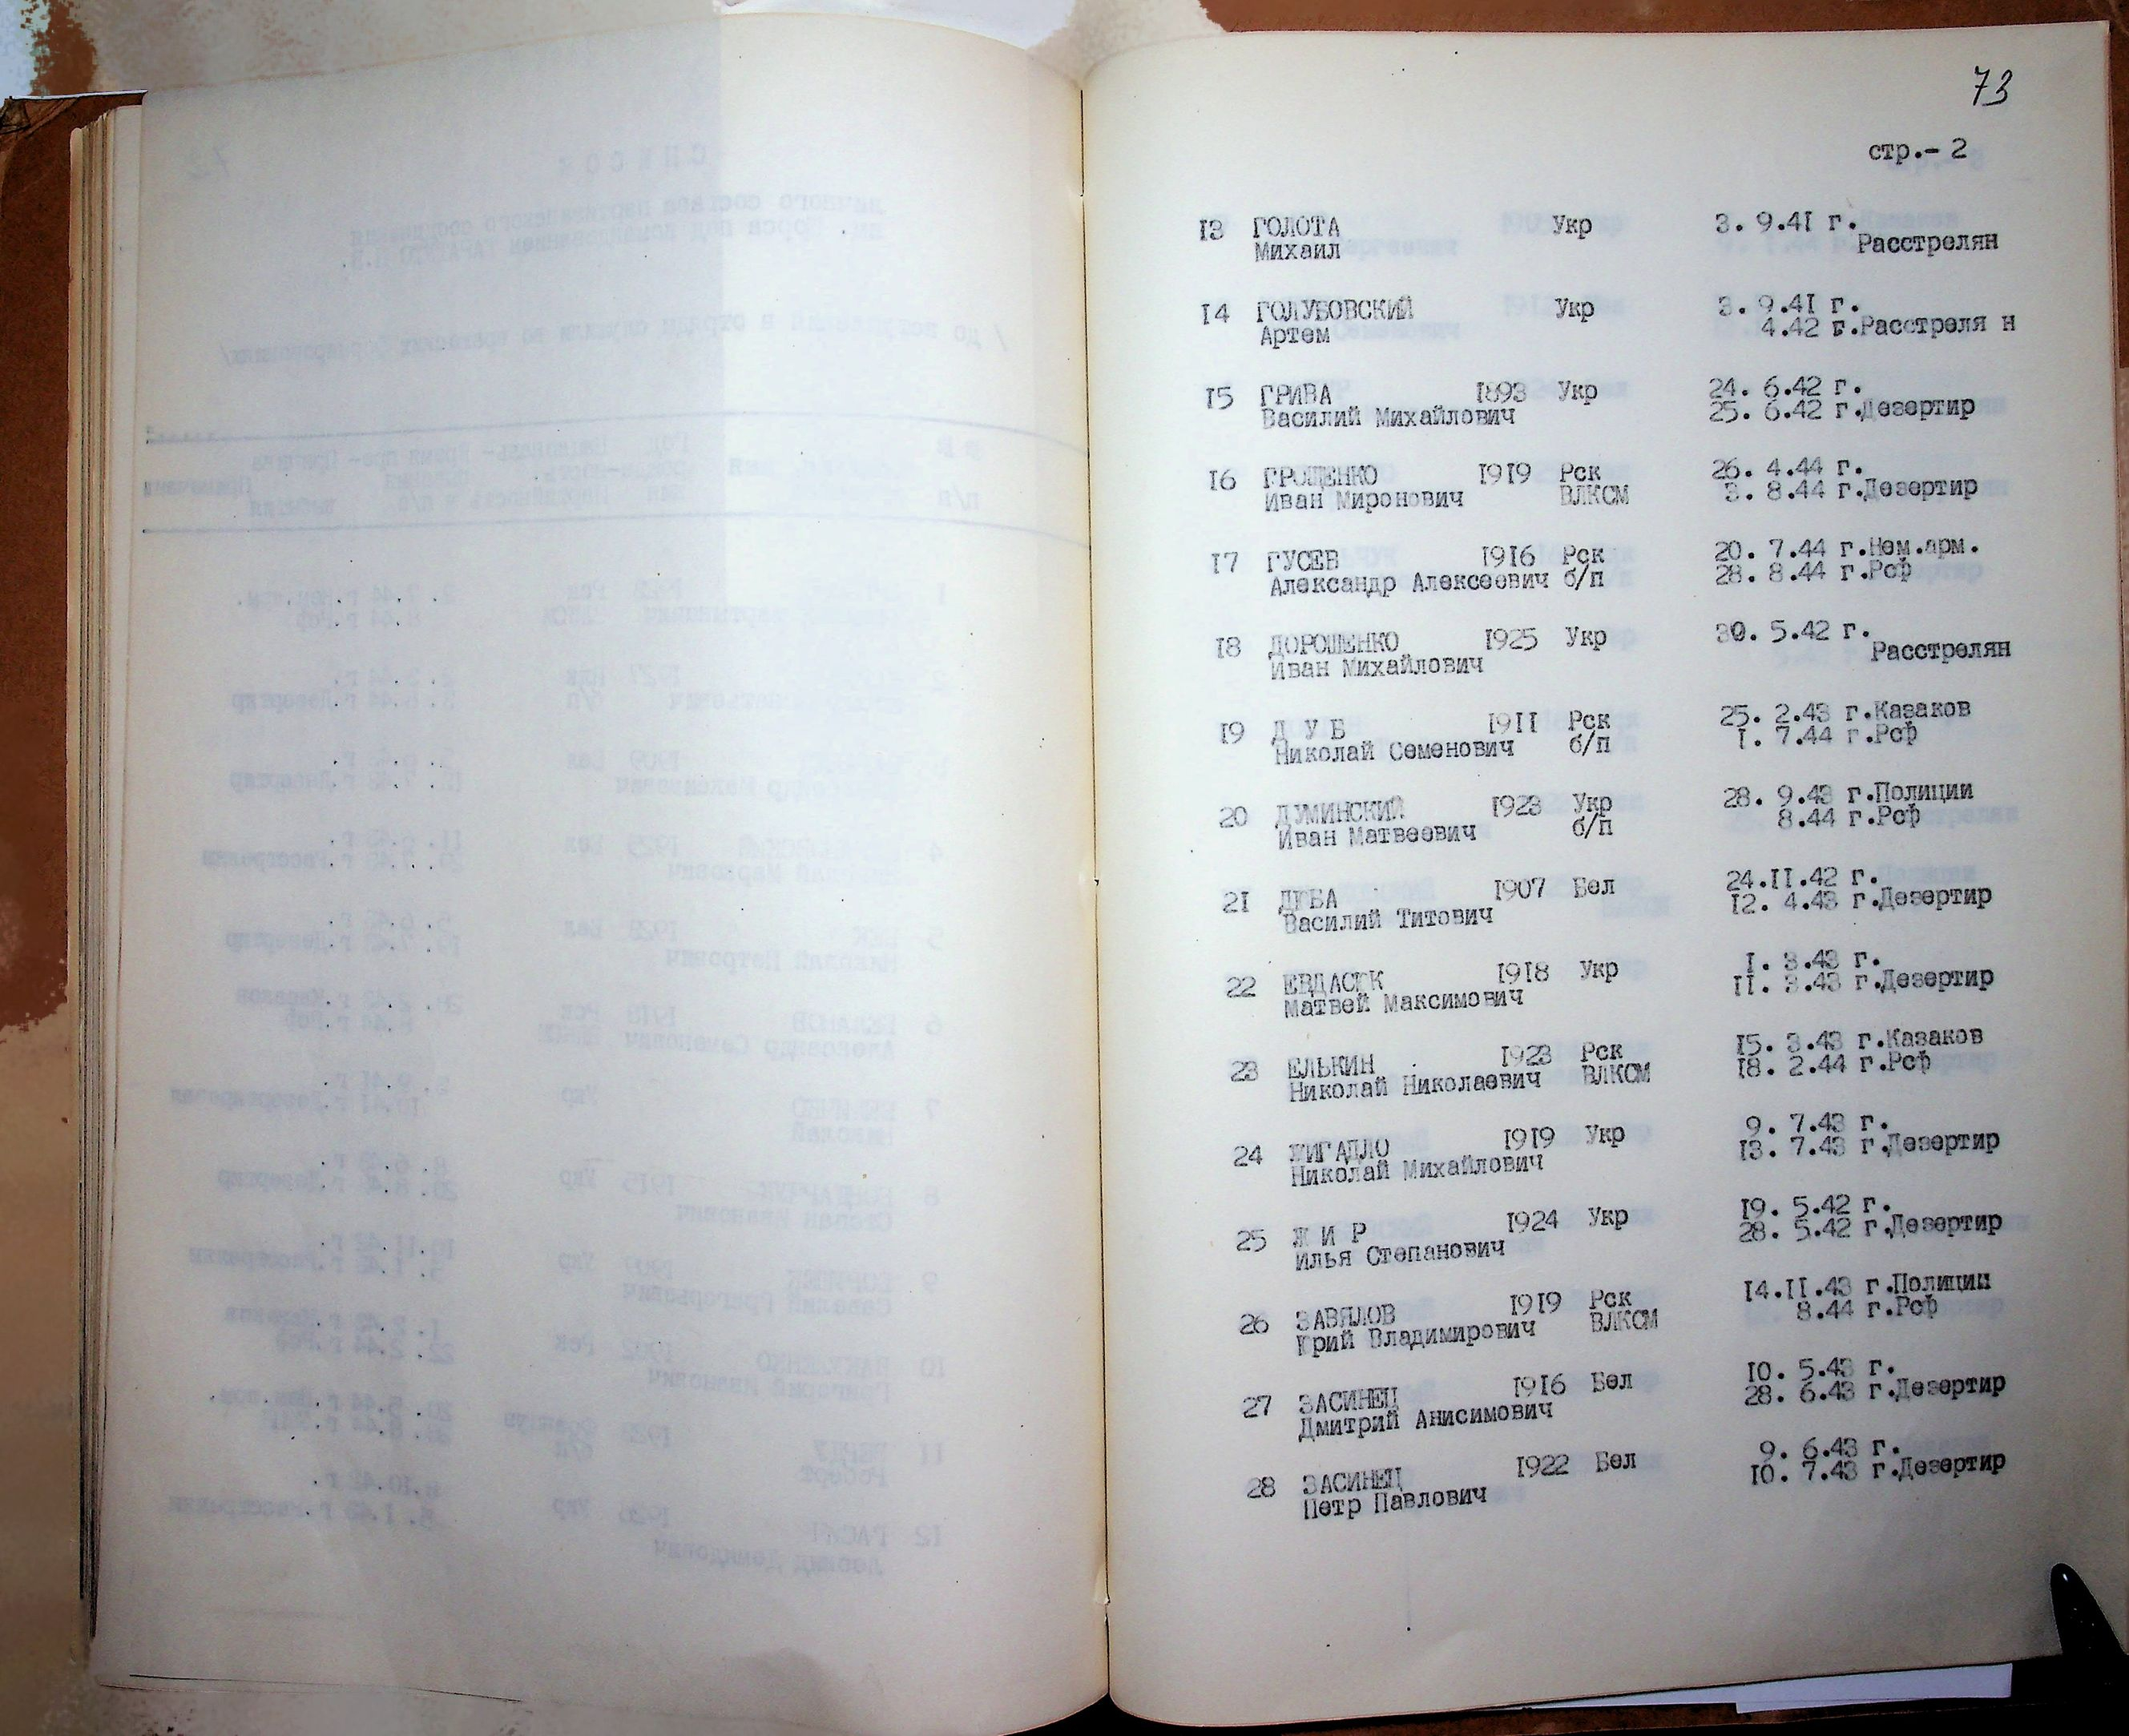 73
стр.- 2
13 ГОЛОТА Укр 3. 9.41 г.
Михаил Расстрелян
14 ГОЛУБОВСКИЙ Укр 3. 9.41 г.
Артем 4.42 г.Расстреля н
15 ГРИВА 1893 Укр 24. 6.42 г.
Василий Михайлович 25. 6.42 г.Дезертир
16 ГРОЩЕНКО 1919 Рск 26. 4.44 г.
Иван Миронович ВЛКСМ 3. 8.44 г.Дезертир
17 ГУСЕВ 1916 Рск 20. 7.44 г.Нем.арм.
Александр Алексеевич б/п 28. 8.44 г.Рсф
18 ДОРОШЕНКО 1925 Укр 30. 5.42 г.
Иван Михайлович Расстрелян
19 Д У Б 1911 Рск 25. 2.43 г.Казаков
Николай Семенович б/п 1. 7.44 г.Рсф
20 ДУМИНСКИЙ 1923 Укр 28. 9.43 г.Полиции
Иван Матвеевич б/п 8.44 г.Рсф
21 1907 Бел 24.11.42 г.
Василий Титович 12. 4.43 г.Дезертир
22 1918 Укр 1. 3.43 г.
Матвей Максимович 11. 3.43 г.Дезертир
23 ЕЛЬКИН 1923 Рск 15. 3.43 г.Казаков
Николай Николаевич ВЛКСМ 18. 2.44 г.Рсф
24 ЖИГАЛЛО 1919 Укр 9. 7.43 г.
Николай Михайлович 13. 7.43 г.Дезертир
25 Ж И Р 1924 Укр 19. 5.42 г.
Илья Степанович 28. 5.42 г.Дезертир
26 ЗАВЯЛОВ 1919 Рск 14.11.43 г.Полиции
Юрий Владимирович ВЛКСМ 8.44 г.Рсф
27 ЗАСИНЕЦ 1916 Бел 10. 5.43 г.
Дмитрий Анисимович 28. 6.43 г.Дезертир
28 ЗАСИНЕЦ 1922 Бел 9. 6.43 г.
Петр Павлович 10. 7.43 г.Дезертир